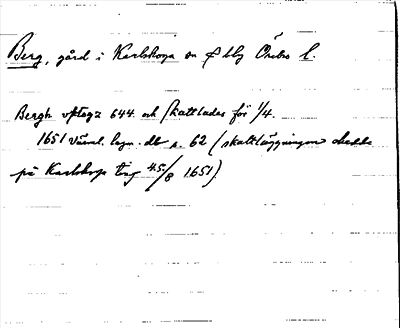 Berg, gård i Karlskoga sn o bbg Örebro l.
Bergh uptogz 644. och skattlades för 1/4.
1651 Värml. lagn. db s. 62 (skattläggningen skedde
på Karlskoga ting 4.5./8 1651).